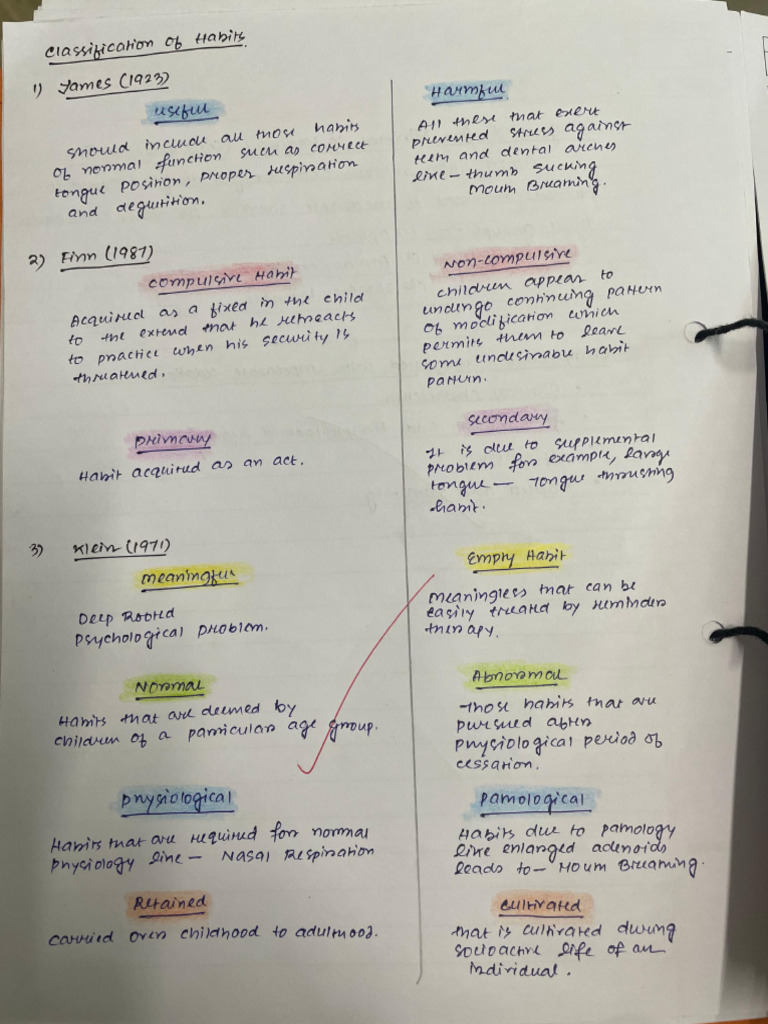 Classification of Habits.
1) James (1923)
Useful
Should include all those habits
of normal function such as correct
tongue position, proper respiration
and degutition.
Harmful
All these that exert
prevented stress against
teeth and dental arches
like - thumb sucking
Mouth Breathing.
2) Finn (1987)
Compulsive Habit
Acquired as a fixed in the child
to the extend that he retreacts
to practice when his security is
threatened.
Non-compulsive
children appear to
undergo continuing pattern
of modification which
permits them to leave
some undesirable habit
pattern.
Primary
Habit acquired as an act.
Secondary
It is due to supplemental
problem for example, large
tongue — Tongue thrusting
habit.
3) Klein (1971)
Meaningful
Deep Rooted
Psychological problem.
Empty Habit
Meaningless that can be
easily treated by reminder
therapy.
Normal
Habits that are deemed by
children of a particular age group.
Abnormal
Those habits that are
pursued after
physiological period of
cessation.
Physiological
Habits that are required for normal
physiology like - Nasal Respiration
Pathological
Habits due to pathology
like enlarged adenoids
leads to - Mouth Breathing.
Retained
Carried over childhood to adulthood.
Cultivated
that is cultivated during
socioactive life of an
individual.